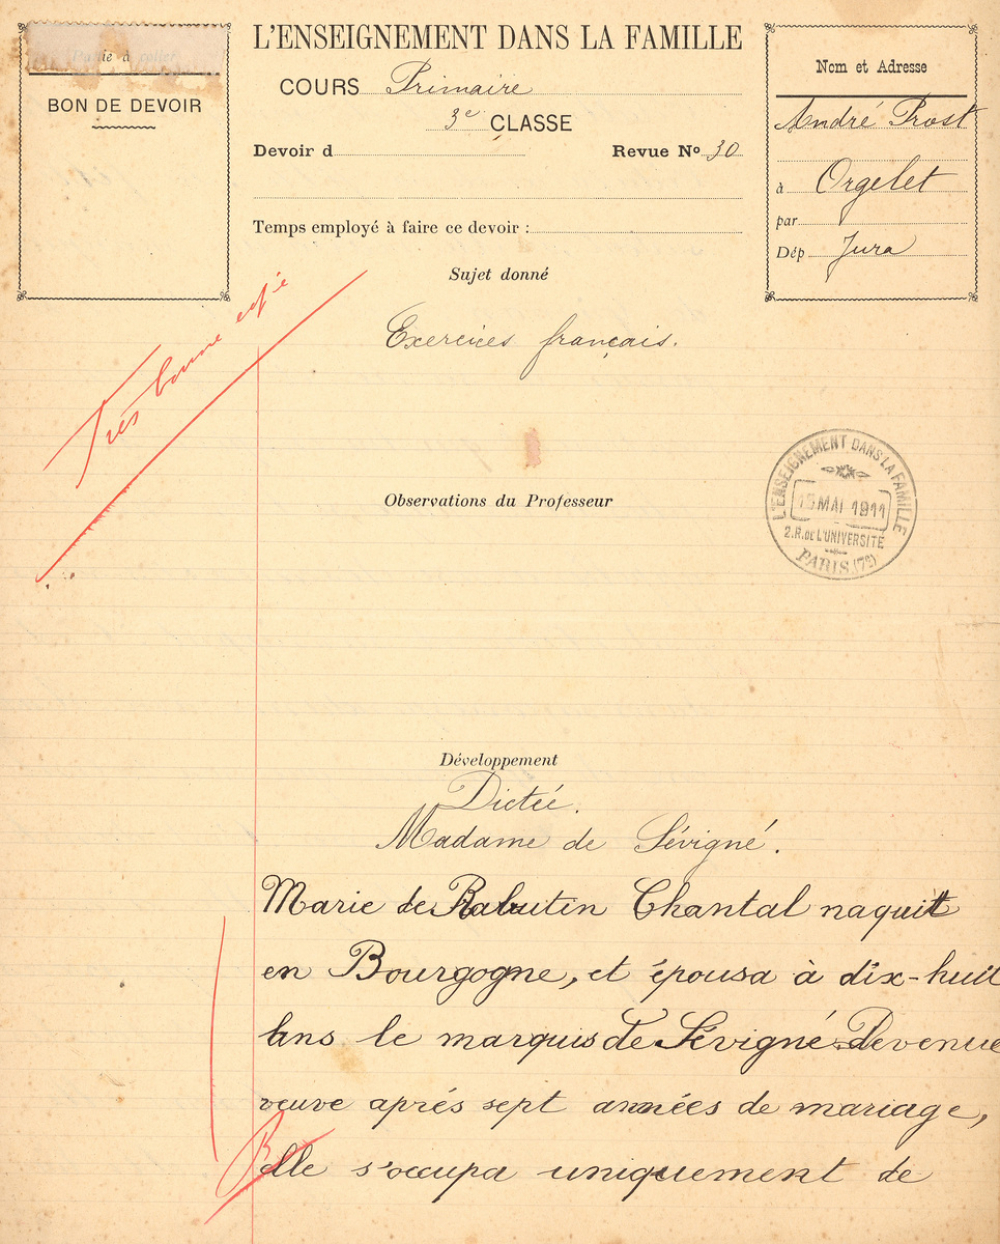 L'ENSEIGNEMENT DANS LA FAMILLE
Partie à coller
BON DE DEVOIR
COURS Primaire
3e CLASSE
Devoir d
Revue No 30
Temps employé à faire ce devoir :
Nom et Adresse
André Prost
à Orgelet
par
Dép Jura
Sujet donné
Exercices français.
Très bonne copie
Observations du Professeur
L'ENSEIGNEMENT DANS LA FAMILLE
15 MAI 1911
2.R. DE L'UNIVERSITÉ
PARIS (7e)
Développement
Dictée.
Madame de Sévigné.
Marie de Rabutin Chantal naquit
en Bourgogne, et épousa à dix-huit
ans le marquis de Sévigné. Devenue
veuve aprés sept années de mariage,
B
elle s'occupa uniquement de